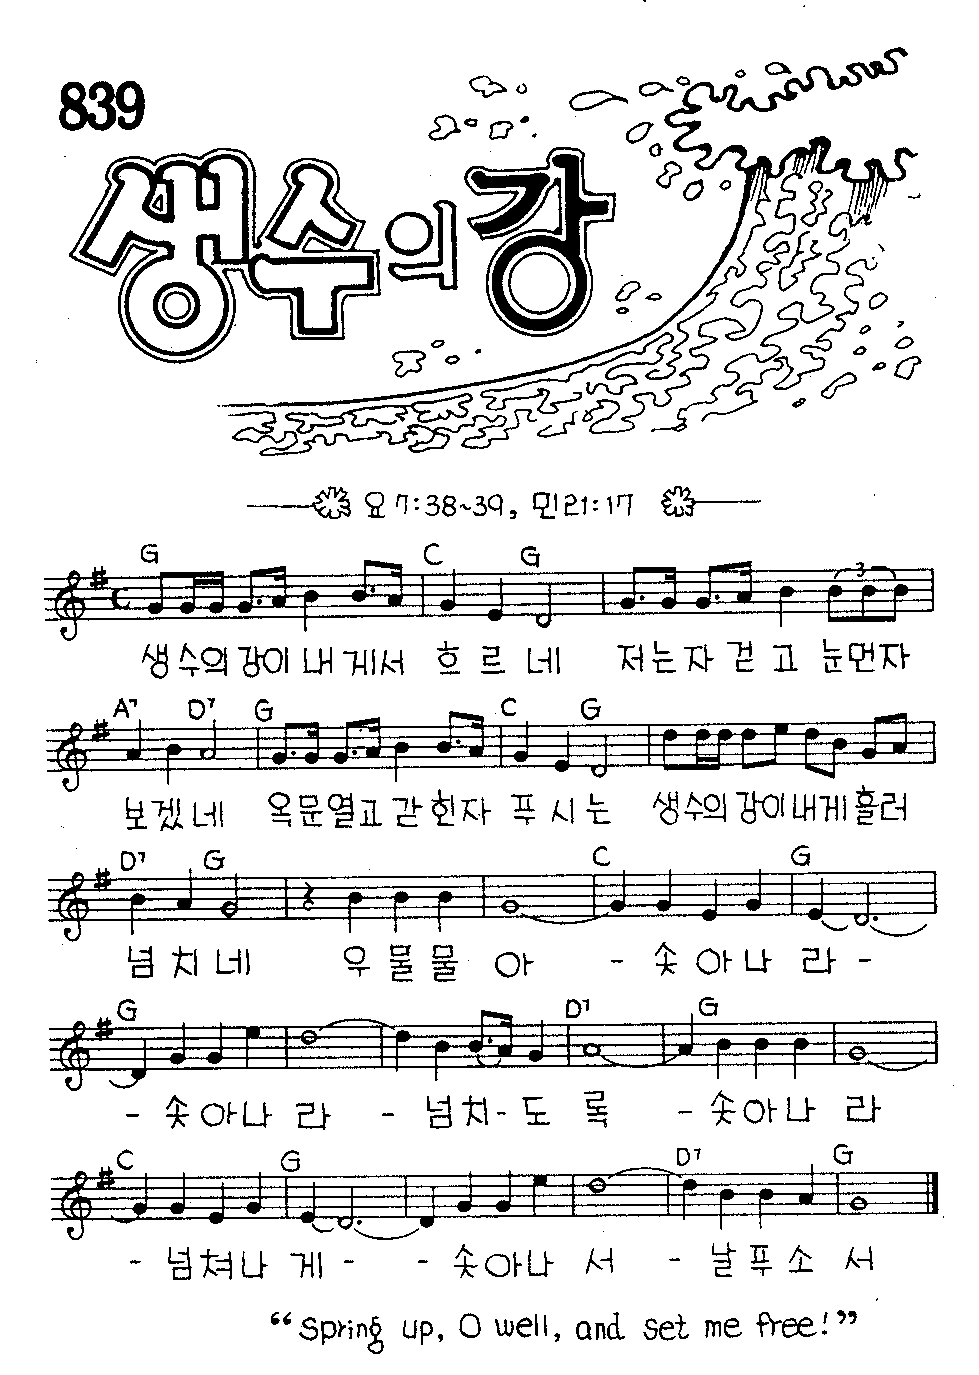 839
생수의 강
요 7:38~39, 민 21:17
G C G
생 수의 강이 내 게서 흐 르 네 저는자 걷 고 눈먼자
A7 D7 G C G
보겠네 옥문열고 갇 힌자 푸 시 는 생수의 강이내게흘러
D7 G C G
넘 치 네 우 물 물 아 - 솟 아 나 라 -
G D7 G
- 솟 아 나 라 - 넘치- 도 록 - 솟 아 나 라
C G D7 G
- 넘 쳐 나 게 - - 솟 아 나 서 - 날 푸 소 서
“Spring up, O well, and set me free!”